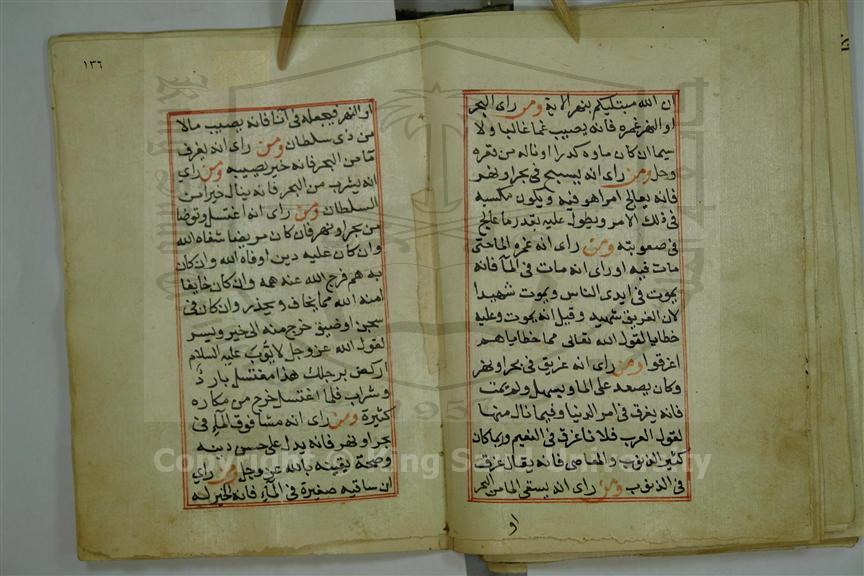 ان الله مبتليكم بنهر الاية ومن راى البحر
او النهر غمره فانه يصيب غما غالبا ولا
سيما ان كان ماوه كدرا او ناله من نقره
وحل ومن راى انه يسبح في بحر او نهر
فانه يعالج امرا هو فيه ويكون مكسبه
في ذلك الامر ويطول عليه بقدر ما عالج
في صعوبته ومن راى انه غمره الما حتى
مات فيه او راى انه مات في الماء فانه
يموت في ايدى الناس ويموت شهيدا
لان الغريق شهيد وقيل انه يموت وعليه
خطايا لقول الله تعالى مما خطاياهم
اغرقوا ومن راى انه غريق في بحر او نهر
وكان يصعد على الما ويسهل ولم يمت
فانه يغرق في امر الدنيا وفيما نال منها
لقول العرب فلان غارق في النعيم وربما كان
كثير الذنوب والمعاصى فانه يقال غرق
في الذنوب ومن راى انه يستقى الما من البحر
او
١٣٦
او النهر فيجعله في اناء فانه يصيب مالا
من ذى سلطان ومن راى انه يغرف
ماء من البحر فانه خير يصيبه ومن راى
انه يشرب من البحر فانه ينال خيرا من
السلطان ومن راى انه اغتسل وتوضا
من بحر او نهر فان كان مريضا شفاه الله
وان كان عليه دين اوفاه الله وان كان
به هم فرج الله عنه همه وان كان خايفا
امنه الله مما يخاف ويحذر وان كان في
سجن او ضيق خرج منه الى خير ويسر
لقول الله عز وجل لايوب عليه السلام
اركض برجلك هذا مغتسل بارد
وشراب فلما اغتسل خرج من مكاره
كثيرة ومن راى انه مشا فوق الماء في
بحر او نهر فانه يدل على حسن دينه
وصحة يقينه بالله عز وجل ومن راى
ان ساقيه صغيرة في الماء فانه الخير له
Copyright © King Saud University
1957